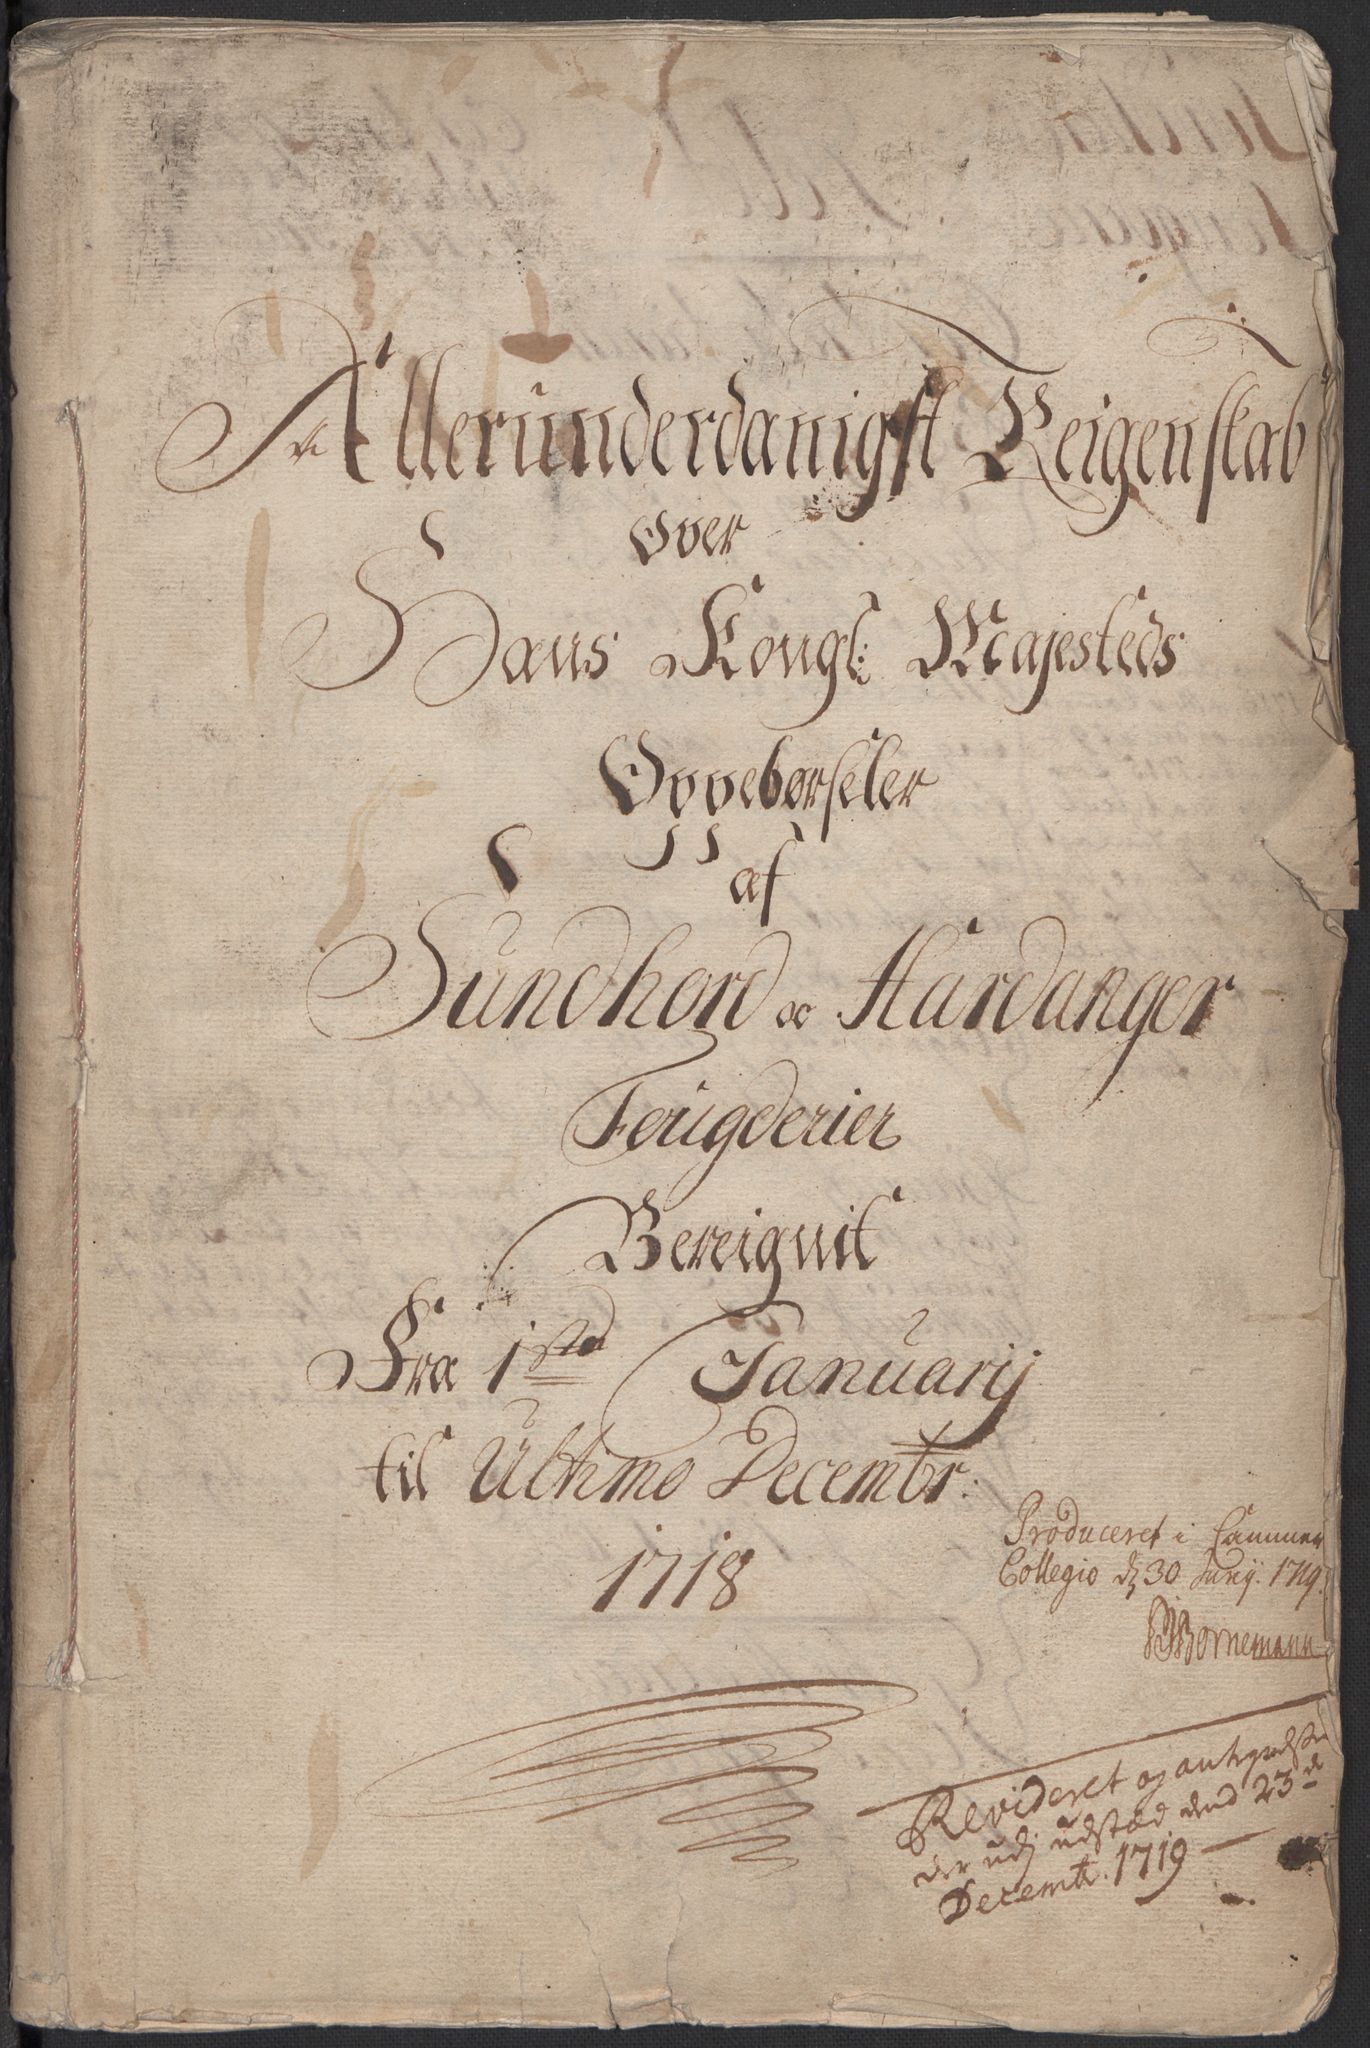 Alleründerdanigst Reigenskab
Over
Hans Kongl: Majesteds
Oppebørseler
af
Sündhord og Hardanger
Fougderier
Bereignit
Fra 1ste Januarij
til Ultimo Decembr:
1718
Produceret i Cammer
Collegio d: 30 Junij. 1719.
Bornemann
Revideret og antegnelser
der udj udstæd dend 23de
Decembr. 1719